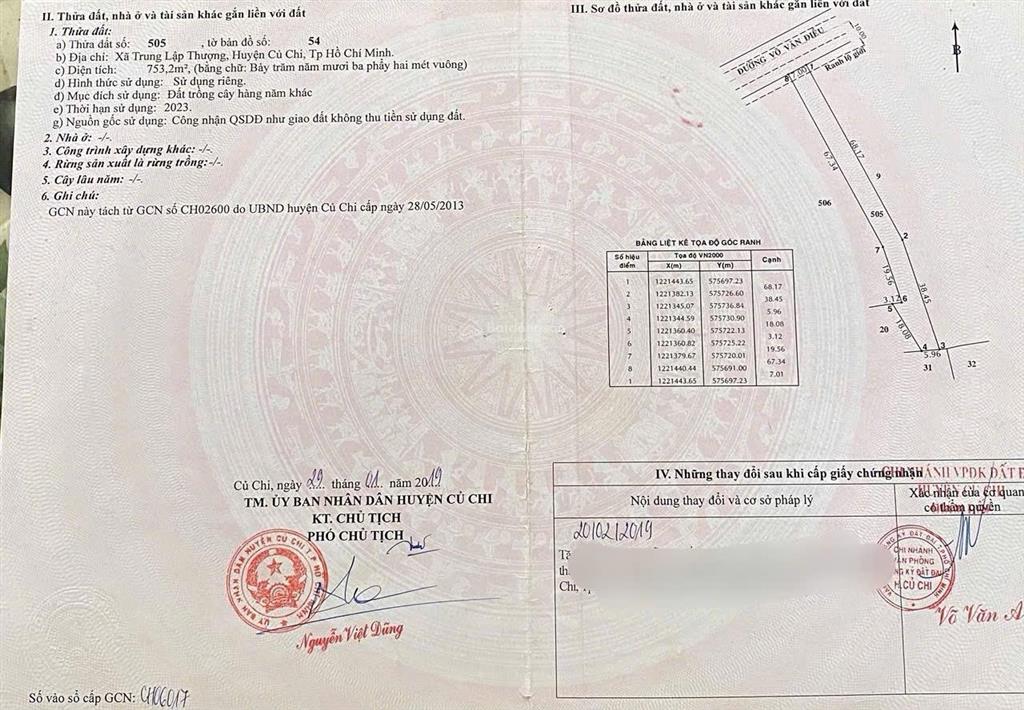 II. Thửa đất, nhà ở và tài sản khác gắn liền với đất
1. Thửa đất:
a) Thửa đất số: 505 , tờ bản đồ số: 54
b) Địa chỉ: Xã Trung Lập Thượng, Huyện Củ Chi, Tp Hồ Chí Minh.
c) Diện tích: 753,2m², (bằng chữ: Bảy trăm năm mươi ba phẩy hai mét vuông)
d) Hình thức sử dụng: Sử dụng riêng.
đ) Mục đích sử dụng: Đất trồng cây hàng năm khác
e) Thời hạn sử dụng: 2023.
g) Nguồn gốc sử dụng: Công nhận QSDĐ như giao đất không thu tiền sử dụng đất.
2. Nhà ở: -/-.
3. Công trình xây dựng khác: -/-.
4. Rừng sản xuất là rừng trồng:-/-.
5. Cây lâu năm: -/-.
6. Ghi chú:
GCN này tách từ GCN số CH02600 do UBND huyện Củ Chi cấp ngày 28/05/2013
Củ Chi, ngày 29 tháng 01 năm 2019
TM. ỦY BAN NHÂN DÂN HUYỆN CỦ CHI
KT. CHỦ TỊCH
PHÓ CHỦ TỊCH
ỦY BAN NHÂN DÂN HUYỆN CỦ CHI T.P HỒ CHÍ MINH
Nguyễn Việt Dũng
Số vào sổ cấp GCN: CH06017
III. Sơ đồ thửa đất, nhà ở và tài sản khác gắn liền với đất
ĐƯỜNG VÕ VĂN ĐIỀU
10.00
Ranh lộ giới
B
8 7.00 1
67.34
68.17
9
506
505
7
2
19.56
38.45
3.12 6
5
20
18.08
4 3
5.96
31
32
BẢNG LIỆT KÊ TỌA ĐỘ GÓC RANH
Số hiệu điểm Tọa độ VN2000 Cạnh
X(m) Y(m)
1 1221443.65 575697.23
68.17
2 1221382.13 575726.60
38.45
3 1221345.07 575736.84
5.96
4 1221344.59 575730.90
18.08
5 1221360.40 575722.13
3.12
6 1221360.82 575725.22
19.56
7 1221379.67 575720.01
67.34
8 1221440.44 575691.00
7.01
1 1221443.65 575697.23
IV. Những thay đổi sau khi cấp giấy chứng nhận
Nội dung thay đổi và cơ sở pháp lý
Xác nhận của cơ quan
có thẩm quyền
20/02/2019
Chi,
CHI NHÁNH
VĂN PHÒNG
ĐĂNG KÝ ĐẤT ĐAI
H.CỦ CHI
Võ Văn